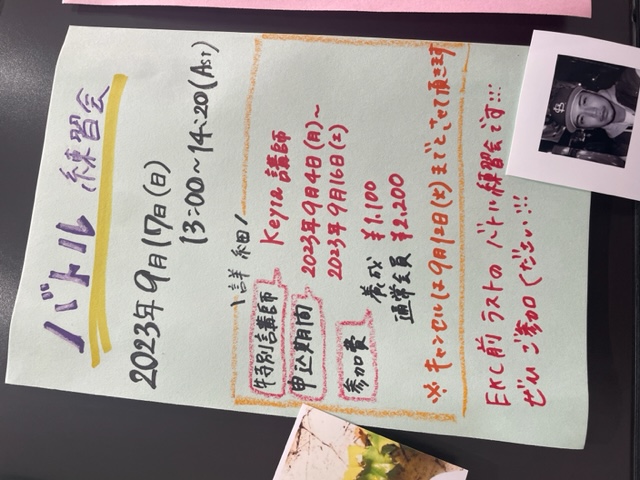 バトル 練習会
2023年9月17日(日)
13:00～14:20(Ast)
\詳細/
特別講師 Keyta 講師
申込期間 2023年9月4日(月)～
2023年9月16日(土)
参加費 養成 ¥1,100
通常会員 ¥2,200
※キャンセルは9月12日(火)までとさせて頂きます
EKC前 ラストの バトル練習会です!!!
ぜひ ご参加 ください!!!